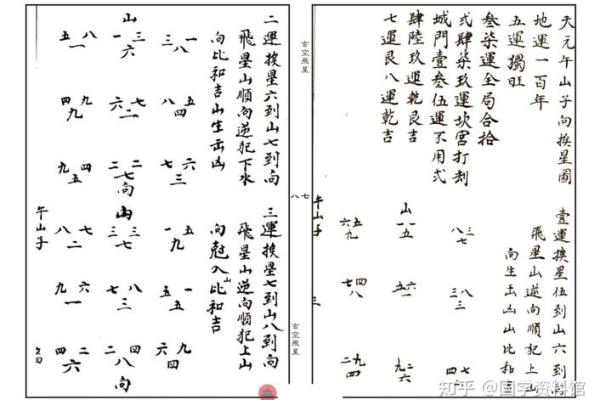 天元午山子向挨星圖
地運一百年
五運獨旺
叁柒運全局合拾
弍肆柒玖運坎宮打刦
城門壹叁伍運不用弍
肆陸玖運乾艮吉
七運艮八運乾吉
壹運挨星伍到山六到向
飛星山逆向順犯上山
向生出凶山比和
山
八三七
一一五
六五九
三八三
五六一
七四八
四七
九二六
二九四
午山子
三
玄空飛星
八七
玄空飛星
二運挨星六到山七到向
飛星山順向逆犯下水
向比和吉山生出凶
山
三一八
一三六
五八一
八五四
六七二
四九九
七六三
二二七
九四五
向
三運挨星七到山八到向
飛星山逆向順犯上山
向尅入山比和吉
山
一五九
三三七
八七二
五一五
七八三
九六一
六九四
二四八
四二六
向
午山子
知乎 @国学资料馆